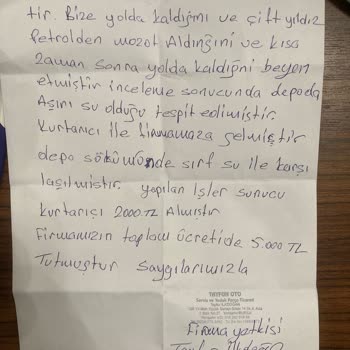 tir. Bize yolda kaldığını ve çift yıldız
Petrolden mazot Aldınğıni ve kısa
zaman sonra yolda kaldığni beyen
etmiştir inceleme sonucunda depoda
Aşırı su olduğu tespit edilmiştir.
Kurtarıcı ile firmamaza gelmiştir
depo sökümünde sırf su ile karşı
laşılmıştır. yapılan işler sunucu
kurtarıçı 2000 TL Almıştır
Firmamızın toplam ücretide 5.000 TL
Tutmuştur saygılarımızla
TAYFUN OTO
Servis ve Yedek Parça Ticaret
Firma yetkisi